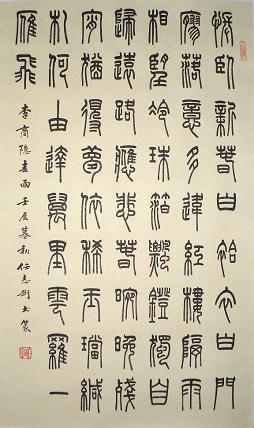 悵臥新春白袷衣白門
寥落意多違紅樓隔雨
相望冷珠箔飄燈獨自
歸遠路應悲春晼晚殘
宵猶得夢依稀玉璫緘
札何由達萬里雲羅一
雁飛
李商隱春雨壬辰暮秋任志剛書篆